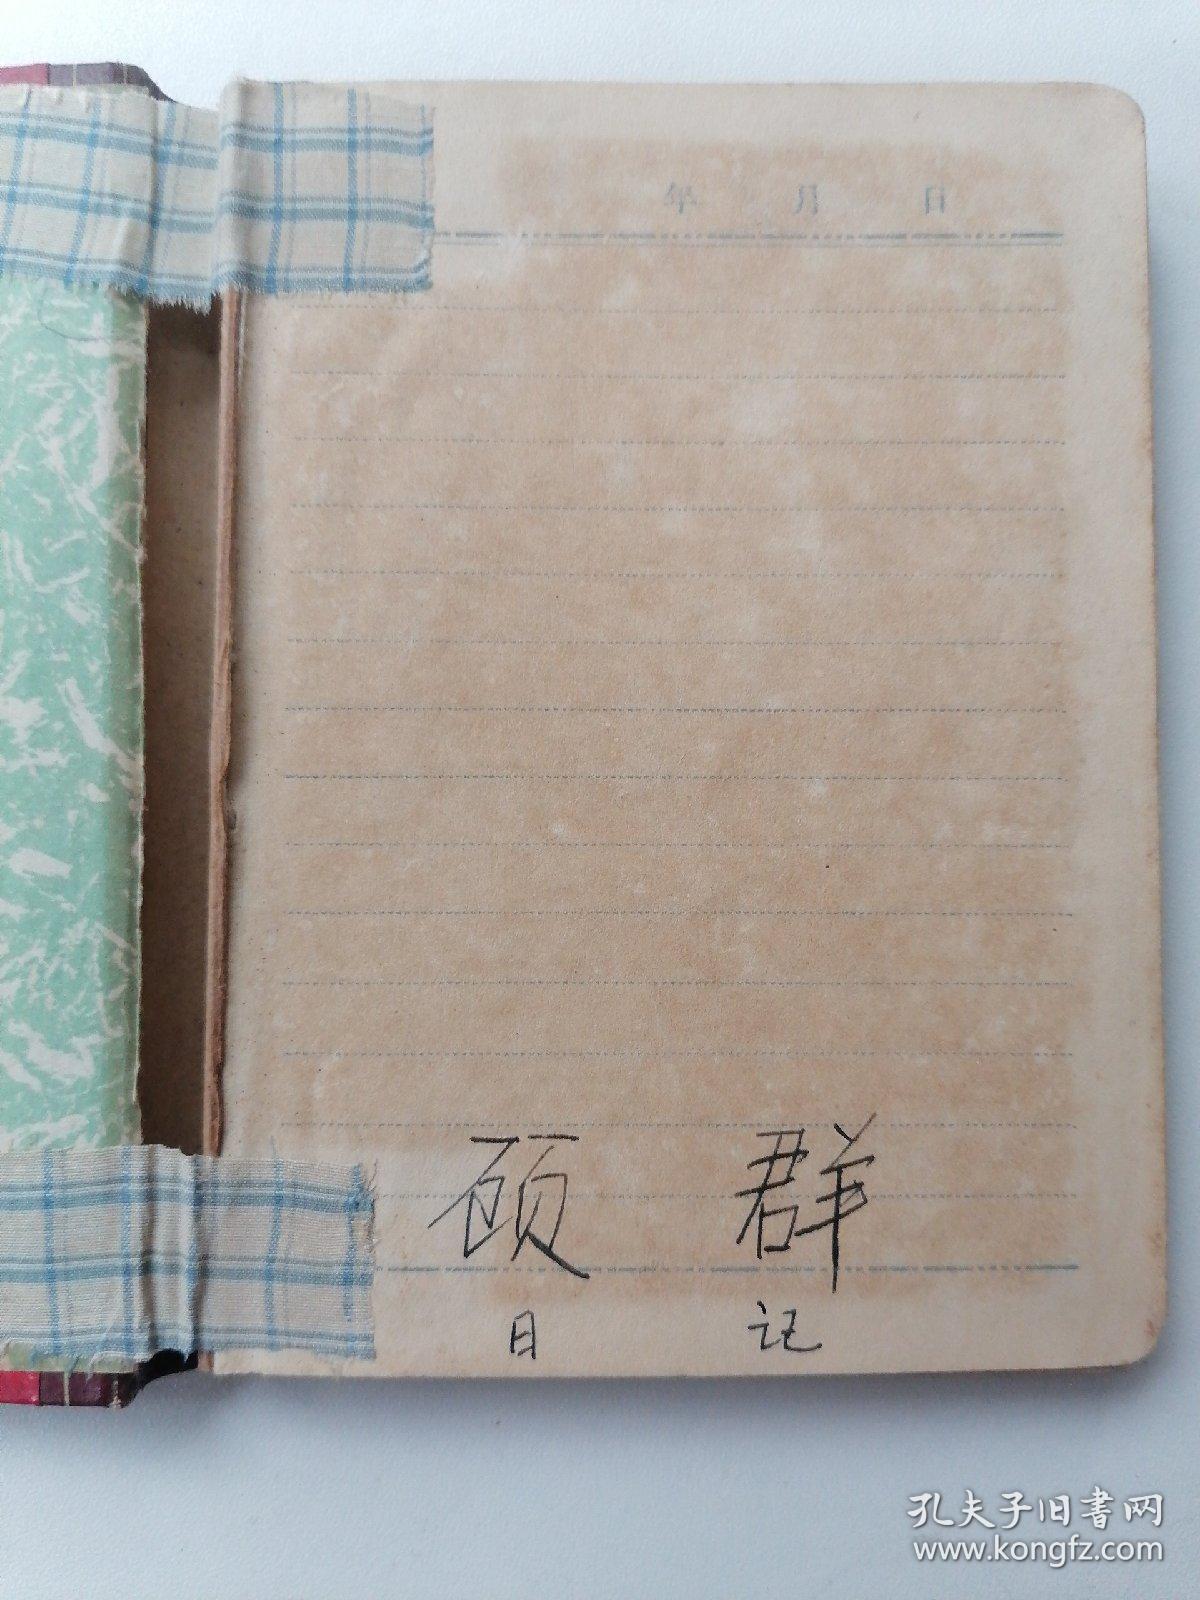 年 月 日
顾 群
日 记
孔夫子旧书网
www.kongfz.com